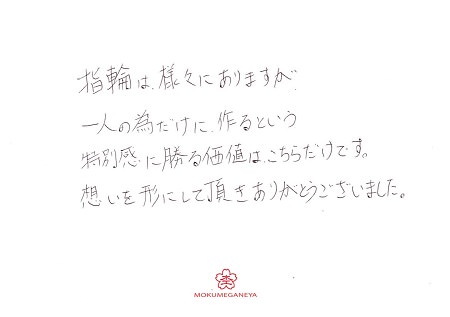 指輪は、様々にありますが
一人の為だけに、作るという
特別感に勝る価値は、こちらだけです。
想いを形にして頂きありがとうございました。
MOKUMEGANEYA